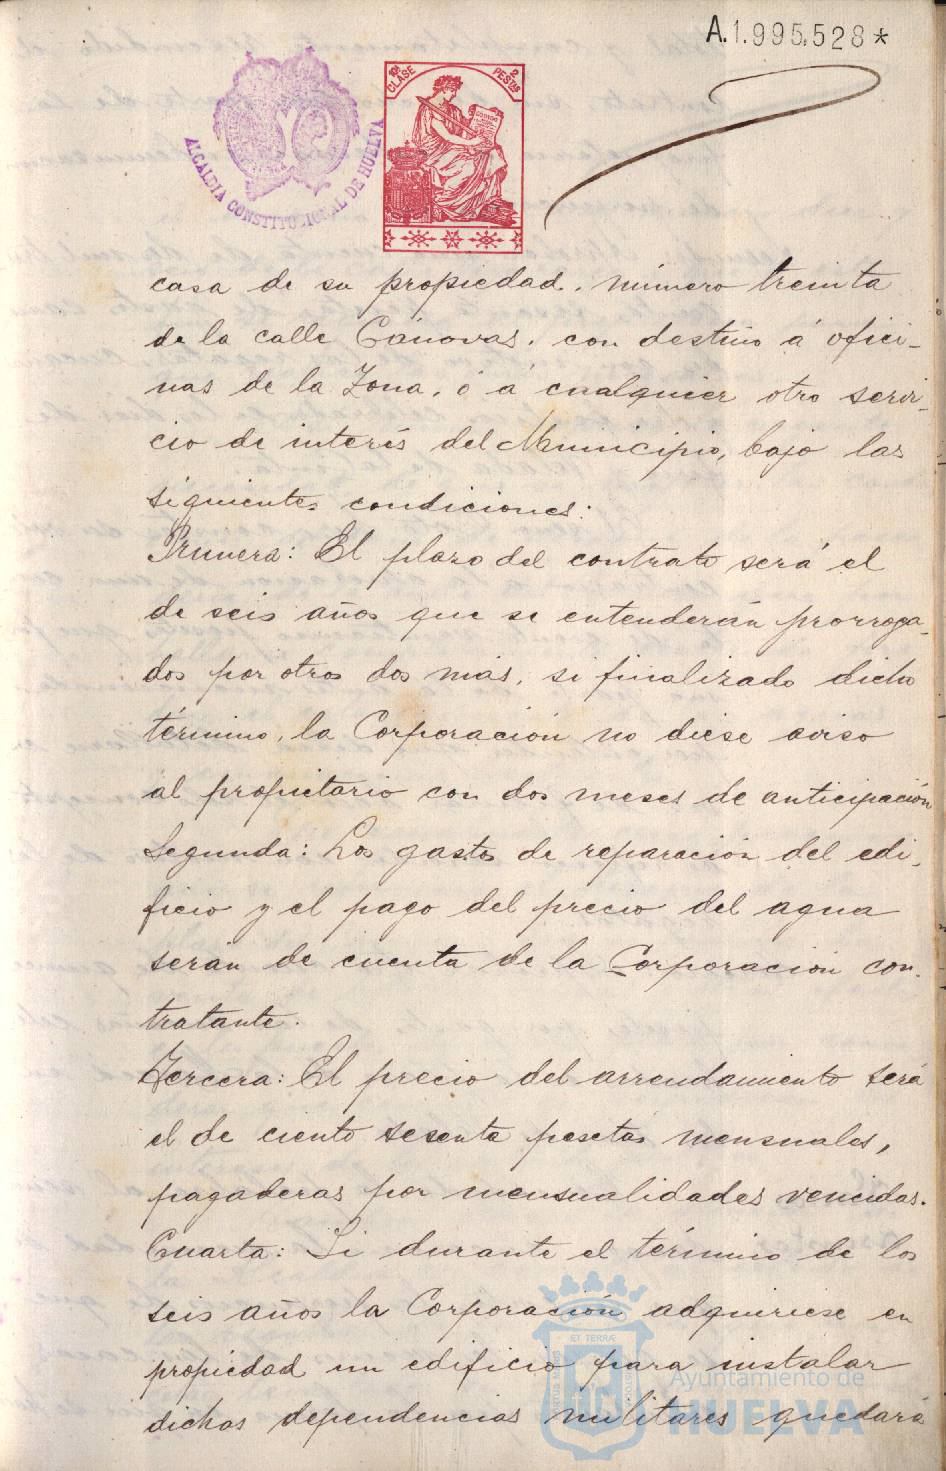 A.1.995.528*
10ª CLASE
2 PESTAS
ALCALDIA CONSTITUCIONAL DE HUELVA
casa de su propiedad, número treinta
de la calle Cánovas, con destino á ofici-
nas de la Zona, ó á cualquier otro servi-
cio de interés del Municipio, bajo las
siguientes condiciones:
Primera: El plazo del contrato será el
de seis años que se entenderán prorroga-
dos por otros dos más, si finalizado dicho
término, la Corporación no diese aviso
al propietario con dos meses de anticipación
Segunda: Los gastos de reparación del edi-
ficio y el pago del precio del agua
serán de cuenta de la Corporación con-
tratante.
Tercera: El precio del arrendamiento será
el de ciento sesenta pesetas mensuales,
pagaderas por mensualidades vencidas.
Cuarta: Si durante el término de los
seis años la Corporación adquiriese en
propiedad un edificio para instalar
dichas dependencias militares quedará
ET TERRÆ
Ayuntamiento de
HUELVA